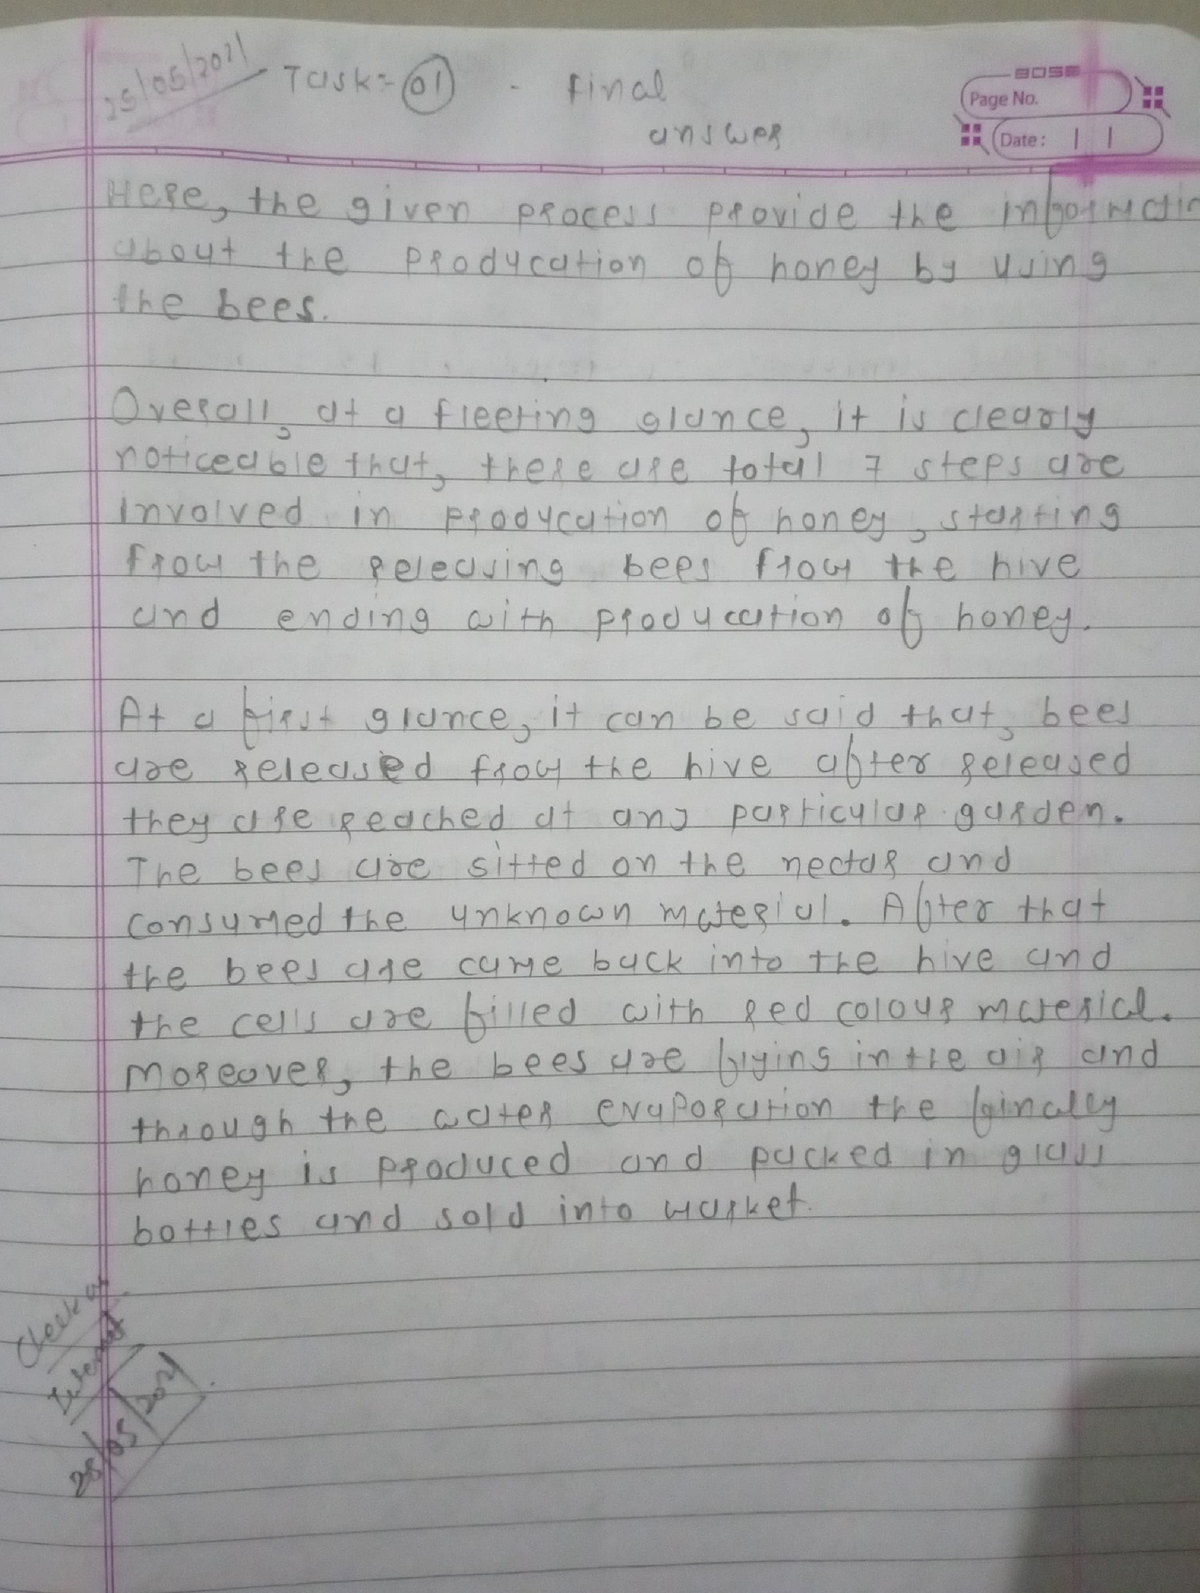 25/05/2021 Task:- 01 - Final
answer
BOSE
Page No.
Date:
Here, the given process provide the informatio
about the producation of honey by using
the bees.
Overall, at a fleeting glance, it is clearly
noticeable that, there are total 7 steps are
involved in producation of honey, starting
from the releasing bees from the hive
and ending with producation of honey.
At a first glance, it can be said that, bees
are released from the hive after released
they are reached at any particular garden.
The bees are sitted on the nectar and
consumed the unknown material. After that
the bees are came back into the hive and
the cells are filled with red colour material.
Moreover, the bees are flying in the air and
through the water evaporation the finally
honey is produced and packed in glass
bottles and sold into market.
Check
Internet
25/05/2021